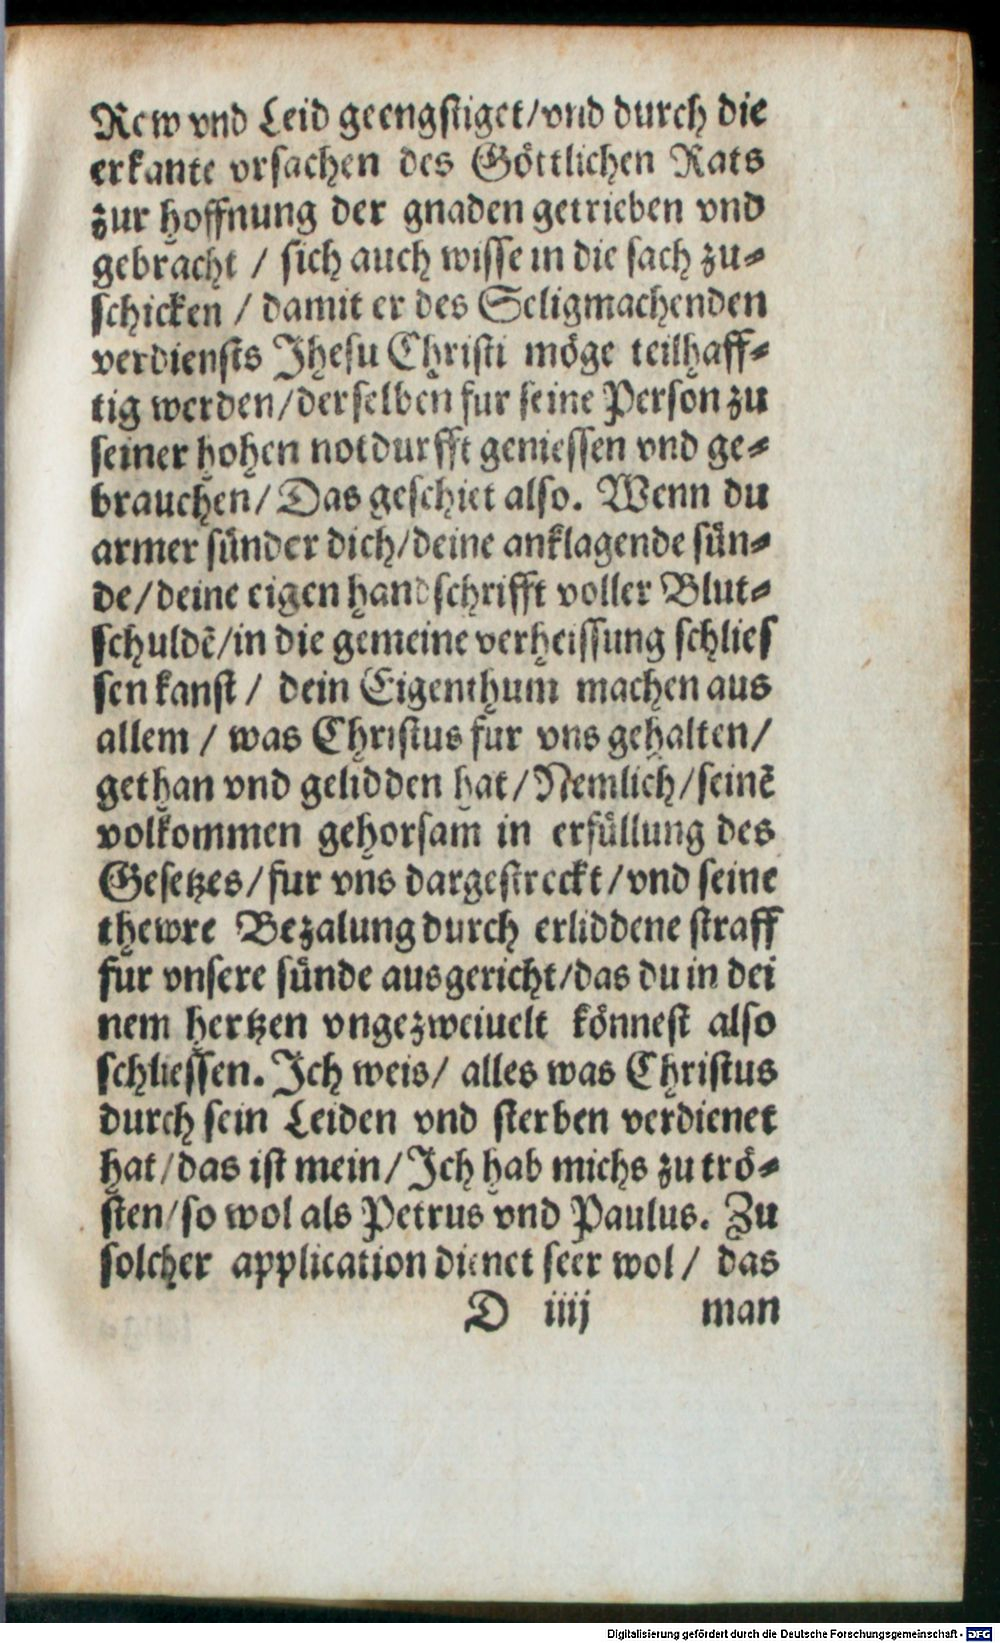 Rew vnd Leid geengstiget/vnd durch die
erkante vrsachen des Göttlichen Rats
zur hoffnung der gnaden getrieben vnd
gebracht / sich auch wisse in die sach zu-
schicken / damit er des Seligmachenden
verdiensts Jhesu Christi möge teilhaff-
tig werden/derselben fur seine Person zu
seiner hohen notdurfft geniessen vnd ge-
brauchen/ Das geschiet also. Wenn du
armer sünder dich/deine anklagende sün-
de/deine eigen handschrifft voller Blut-
schuldẽ/in die gemeine verheissung schlies
sen kanst / dein Eigenthum machen aus
allem / was Christus fur vns gehalten/
gethan vnd gelidden hat/Nemlich/seinẽ
volkommen gehorsam in erfüllung des
Gesetzes/fur vns dargestreckt/vnd seine
thewre Bezalung durch erliddene straff
fur vnsere sünde ausgericht/das du in dei
nem hertzen vngezweiuelt könnest also
schliessen. Ich weis/ alles was Christus
durch sein Leiden vnd sterben verdienet
hat/das ist mein/Ich hab michs zu trö-
sten/so wol als Petrus vnd Paulus. Zu
solcher application dienet seer wol/ das
D iiij man
Digitalisierung gefördert durch die Deutsche Forschungsgemeinschaft - DFG